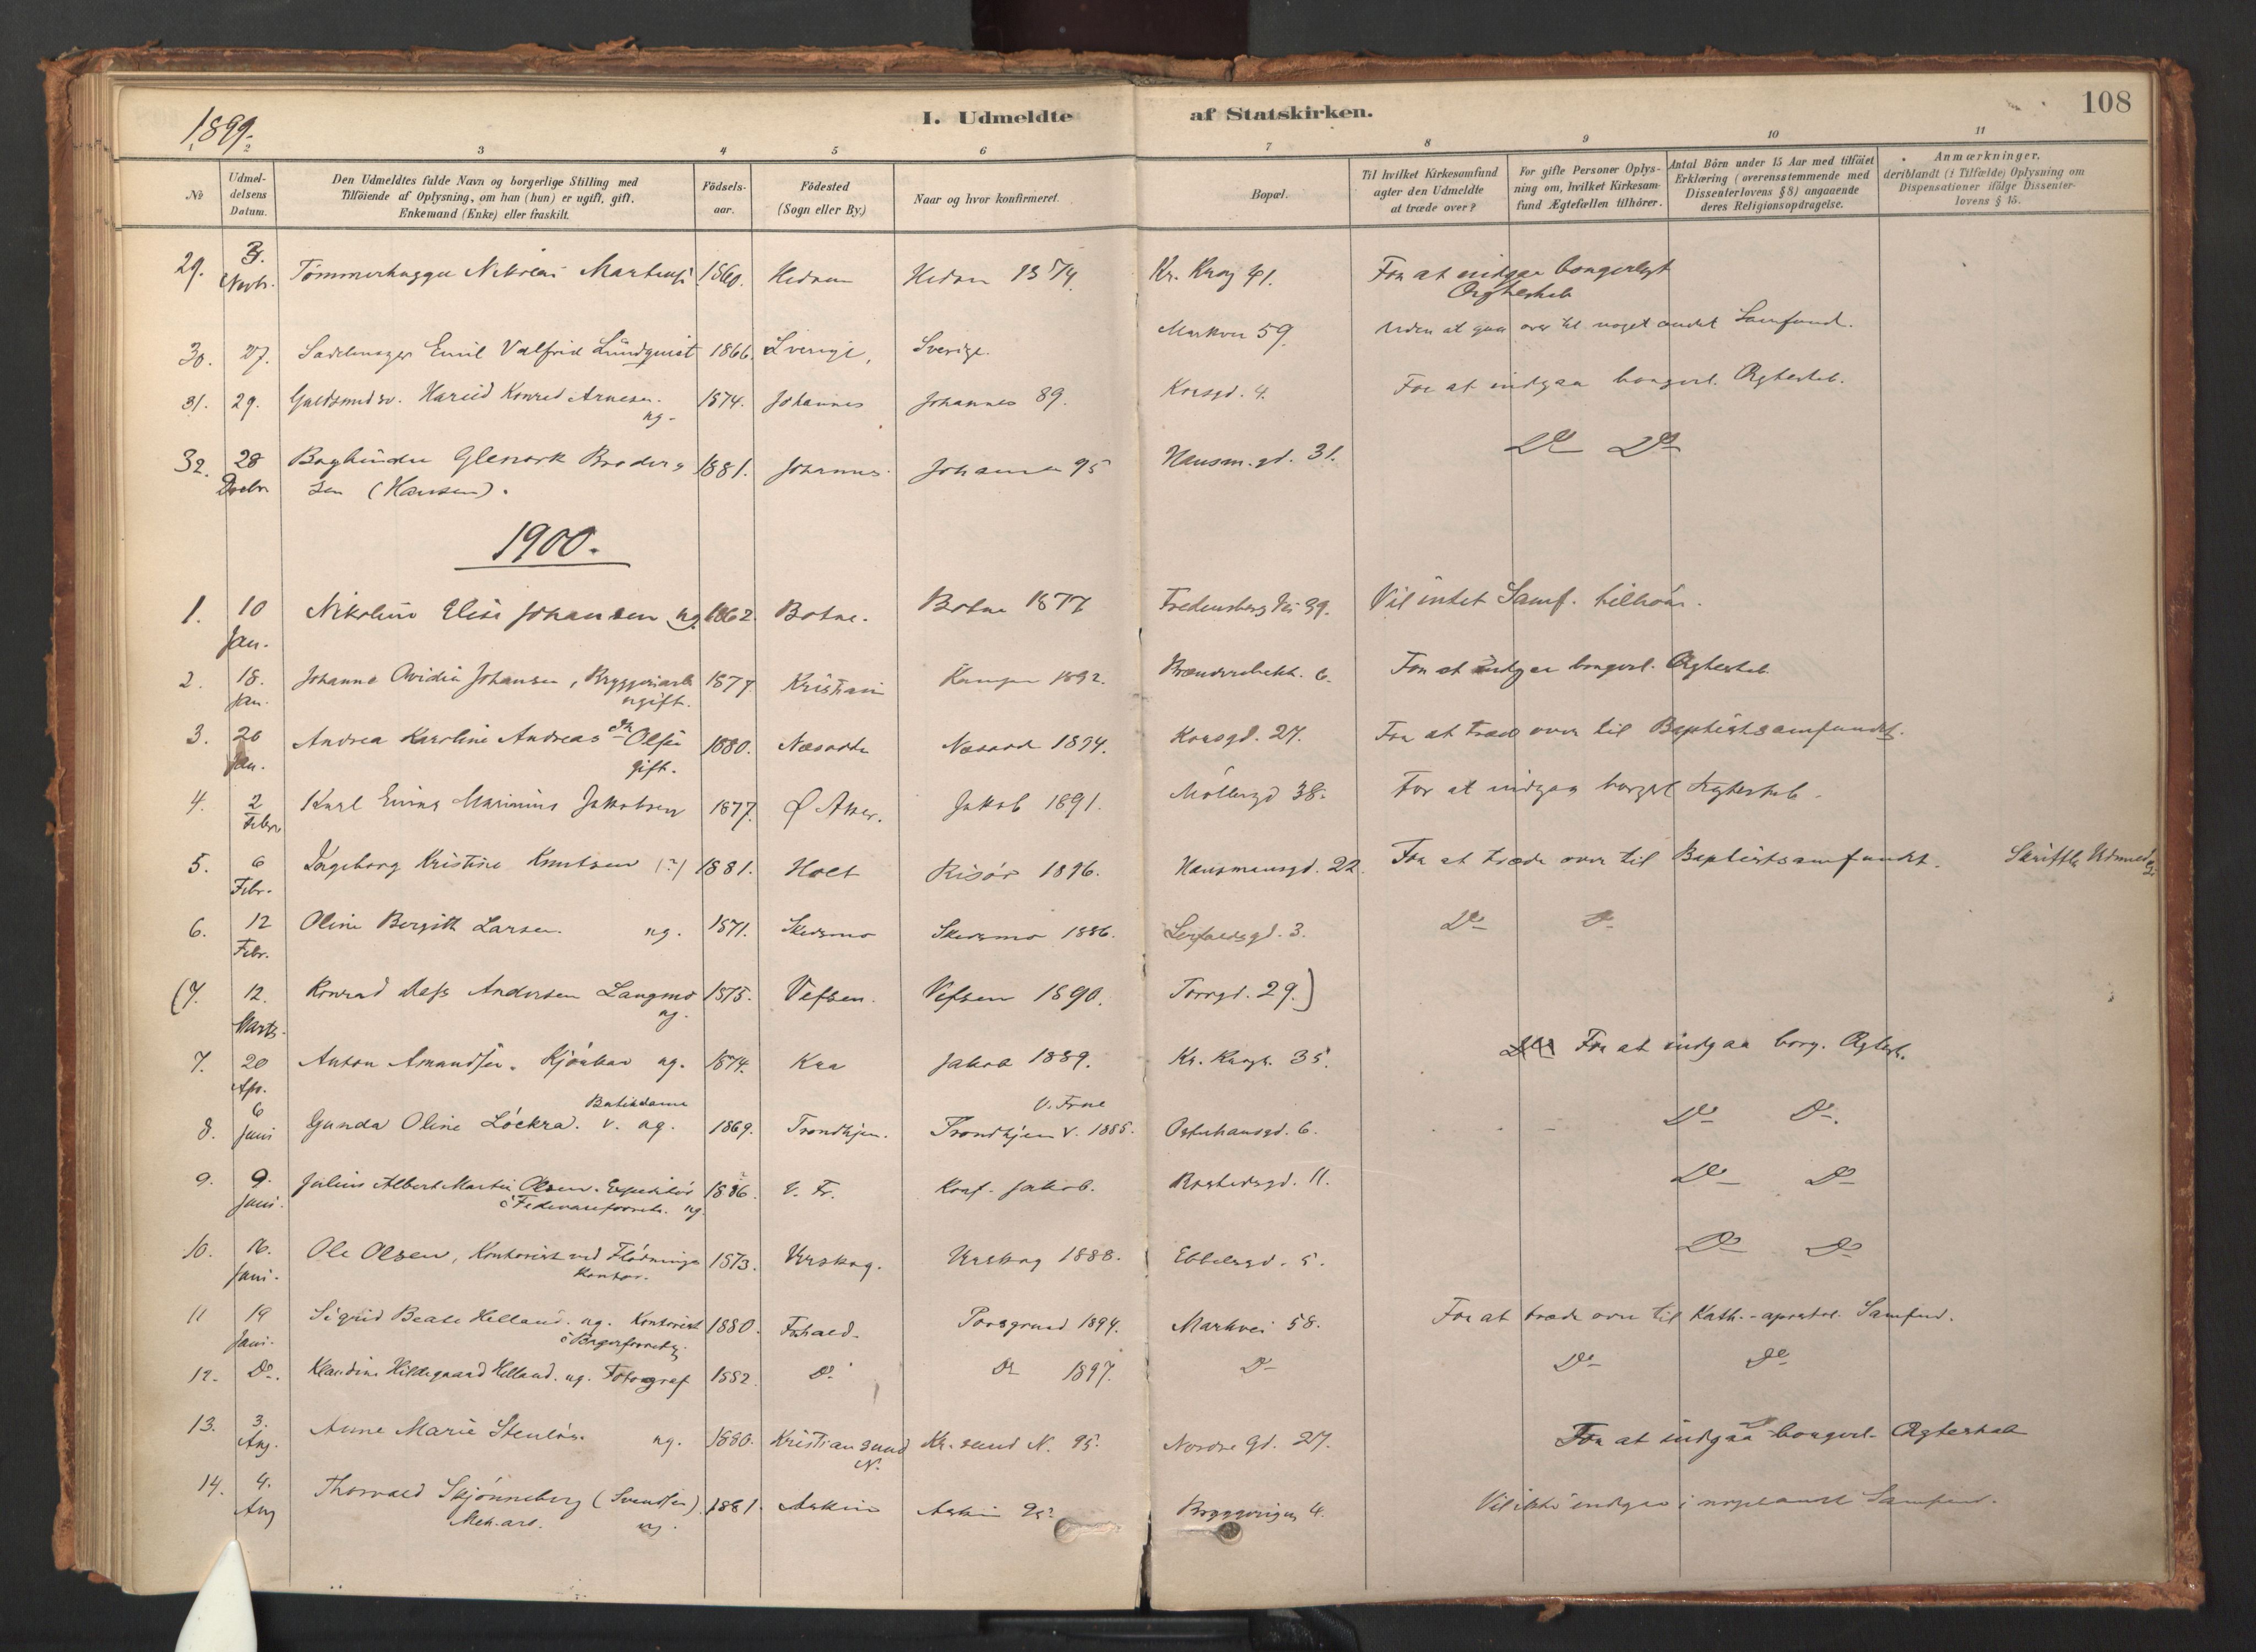 108
1899.
I. Udmeldte af Statskirken.
1 2 3 4 5 6 7 8 9 10 11
No
Udmel-
delsens
Datum.
Den Udmeldtes fulde Navn og borgerlige Stilling med
Tilföiende af Oplysning, om han (hun) er ugift, gift,
Enkemand (Enke) eller fraskilt.
Födsels-
aar.
Födested
(Sogn eller By.)
Naar og hvor konfirmeret.
Bopæl.
Til hvilket Kirkesamfund
agter den Udmeldte
at træde over?
For gifte Personer Oplys-
ning om, hvilket Kirkesam-
fund Ægtefællen tilhörer.
Antal Börn under 15 Aar med tilföiet
Erklæring (overensstemmende med
Dissenterlovens § 8) angaaende
deres Religionsopdragelse.
Anmærkninger,
deriblandt (i Tilfælde) Oplysning om
Dispensationer ifölge Dissenter-
lovens § 15.
29. 3. Novbr. Tømmerhugger 1860. Hedrum Kr. Krog 41. For at indgaa borgerligt
Ægteskab
30. 27. Sadelmager Emil Valfrid Lündquist 1866. Sverige, Sverige. Markvei 59. Uden at gaa over til noget andet Samfund.
31. 29. Konrad Arnesen. ug. 1874. Johannes Johannes 89. Korsgd. 4. For at indgaa borgerl. Ægteskab.
32. 28 Decbr. Bogbinder Broder- 1881. Johannes. Johannes 95 Hausm. gd. 31. Do Do
sen (Hansen).
1900.
1. 10 Jan. Nikoline Elise Johansen ug. 1862. Botne. Botne 1877 Fredensborg Vei 39. Vil intet Samf. tilhøre.
2. 18. Jan. Johanne Johansen, ugift. 1877 Kristiania Kampen 1892. 6. For at indgaa borgerl. Ægteskab.
3. 20 Jan. Andrea Karoline Andreas Olsen gift. 1880. Næsodde Næsodd 1894. Korsgd. 27. For at træde over til Baptistsamfundet.
4. 2 Febr. Karl Marinius Jakobsen 1877. Ø Aker. Jakob 1891. Møllergd 38. For at indgaa borgerl Ægteskab.
5. 6 Febr. Ingeborg Kristine Knutsen (?) 1881. Holt Risør 1896. Hausmannsgd. 22. For at træde over til Baptistsamfundet. Skriftl. Udmeld.
6. 12 Febr. Oline Bergitte Larsen. ug. 1871. Skedsmo Skedsmo 1886. 3. Do Do
(7. 12. Marts. Konrad Andersen Langmo ug. 1875. Vefsen. Vefsen 1890. Torvgd. 29.)
7. 20 Apr. Anton Amundsen. ug. 1874. Kra Jakob 1889. Kr. Krogh. 35. For at indgaa borg. Ægtesk.
8. 6 Juni Gunda Oline Løckra. v. ug. 1869. Trondhjem. Trondhjem V. Frue 1885. Osterhausgd. 6. Do Do
9. 9. Juni. Julius Albert Martin Olsen. Expeditør 1886. V. Fr. Konf. Jakob. 11. Do Do
i Fedevareforretn. ug.
10. 16. Juni. Ole Olsen, Kontorist ved Flødnings- 1873. Urskog. Urskog 1888. 5. Do Do
kontor.
11 19 Juni. Sigrid Beate Helland. ug. Kontorist 1880. Fr.hald. Porsgrund 1894. Markvei 58. For at træde over til Kath.-apostol. Samfund.
12. Do. Klaudine Hildegaard Helland. ug. Fotograf 1882. Do Do 1897. Do Do Do
13. 3. Aug. Anne Marie ug. 1880. Kristiansund N. Kr. sund N. 95. Nordre Gd. 27. For at indgaa borgerl. Ægteskab
14. 4. Aug Thorvald Skjønneberg (Svendsen). 1881. Askim Askim 95? 4. Vil ikke indgaa i noget andet Samfund.
Mek. arb. ug.